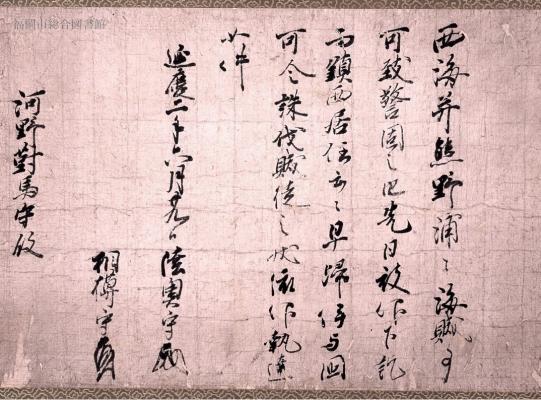 西海并熊野浦々海賊事
可致警固之由先日被仰下訖
而鎮西居住云々早歸伊与国
可令誅伐賊徒之状依仰執達
如件
延慶二年六月廿九日 陸奥守
相模守
河野對馬守殿
福岡市総合図書館